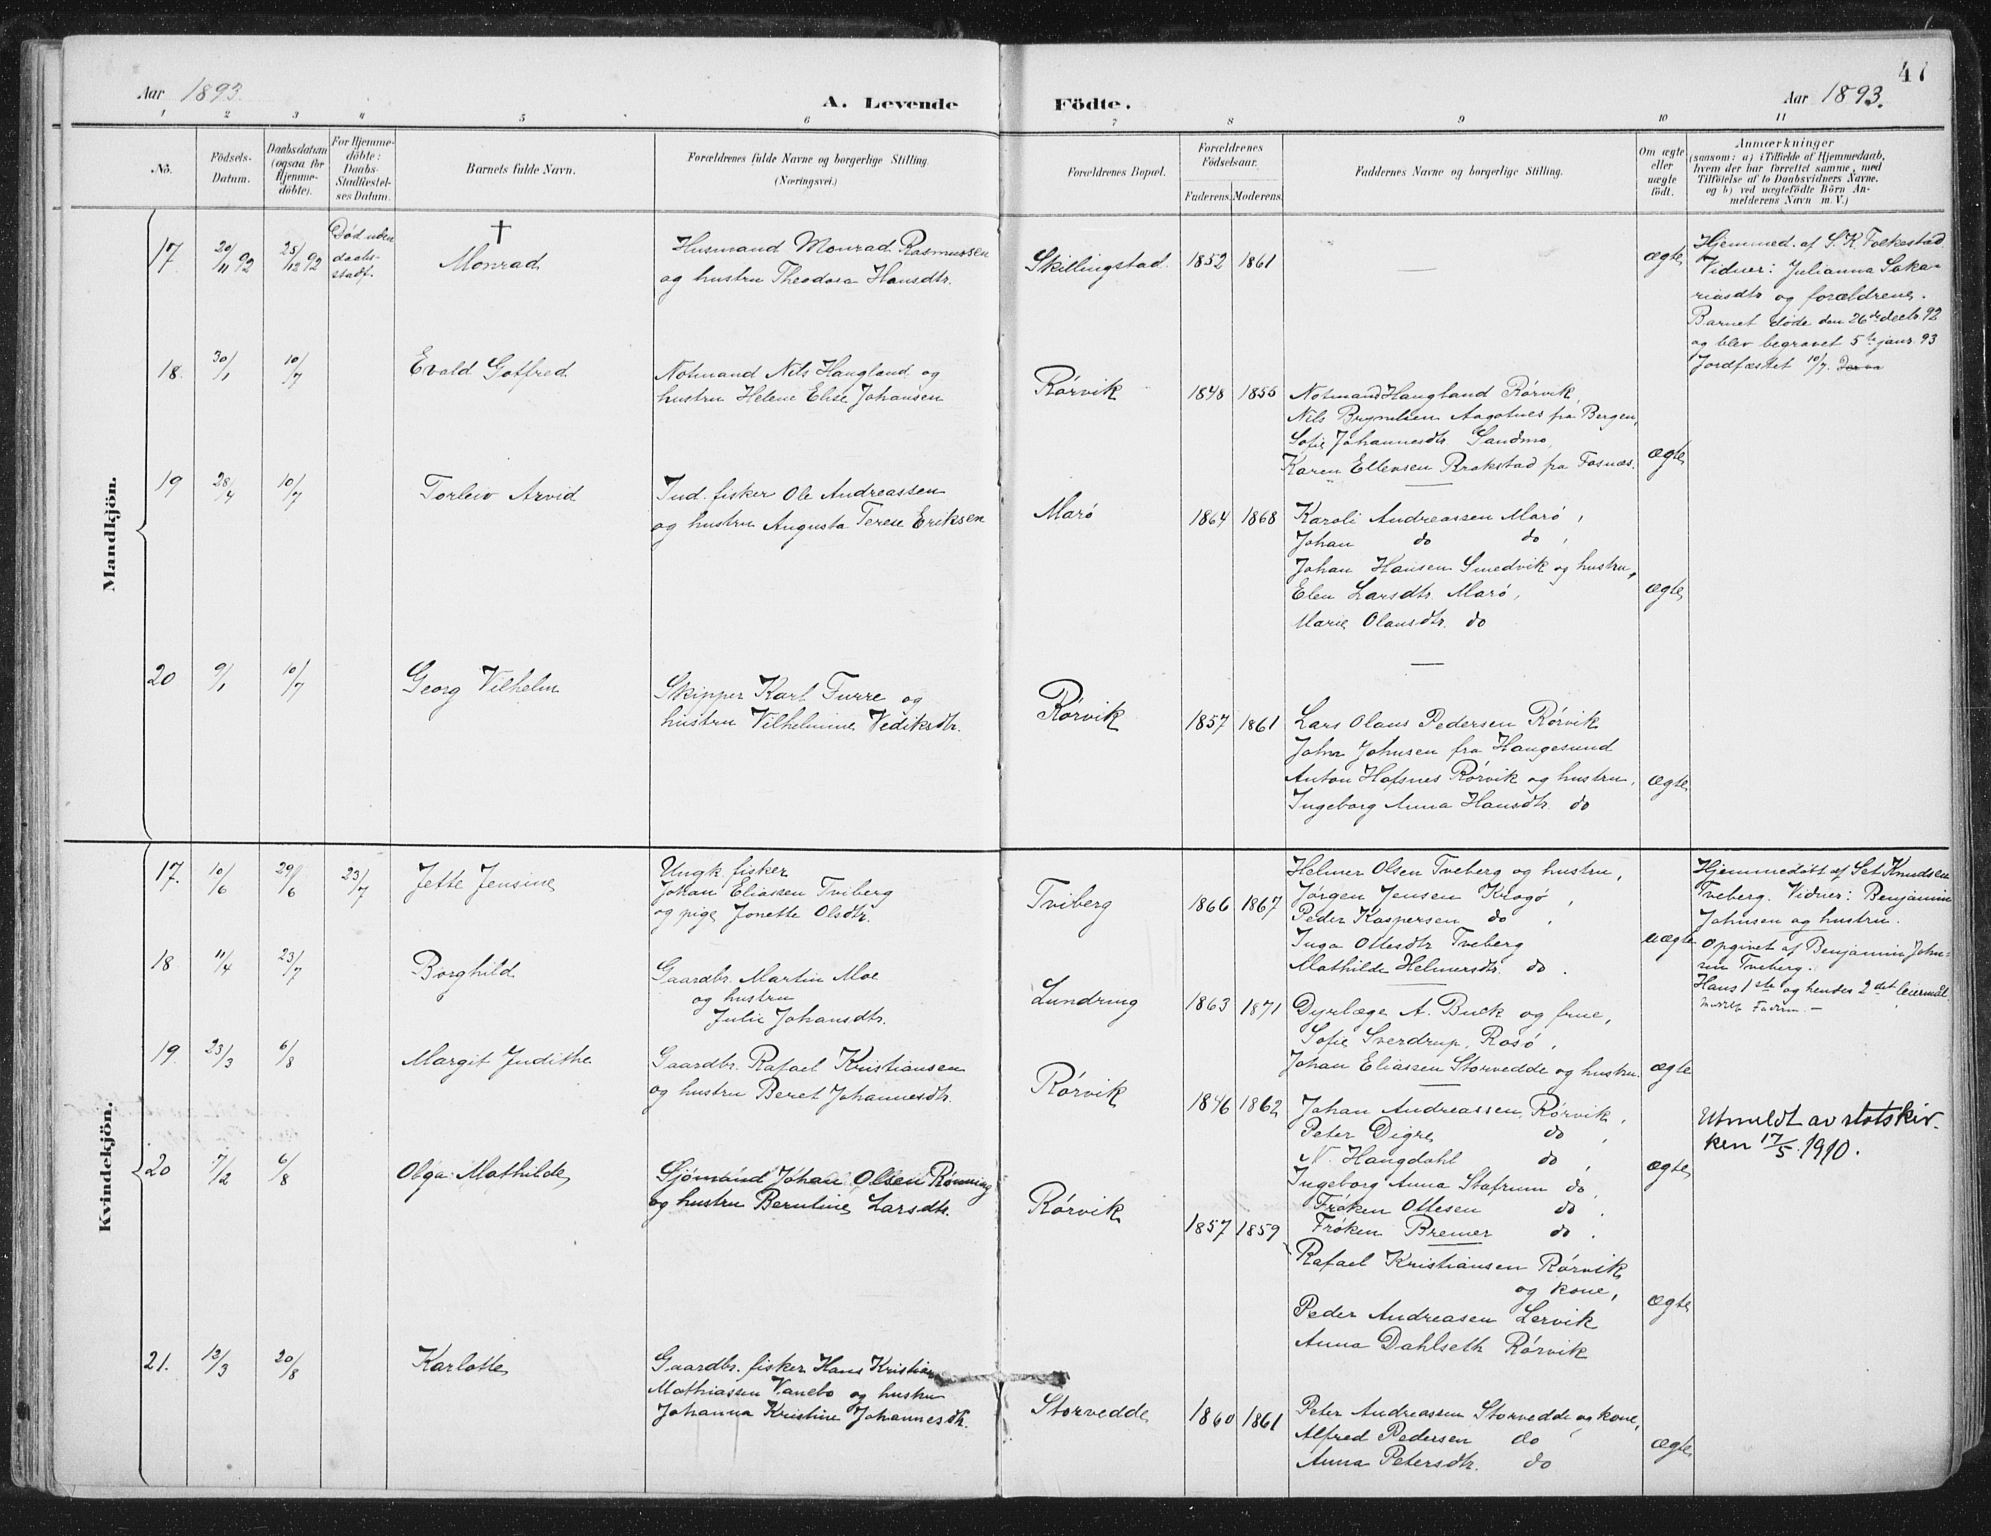 Aar 1893.
A. Levende Födte.
Aar 1893.
47
1 2 3 4 5 6 7 8 9 10 11
No.
Födsels-Datum.
Daabsdatum (ogsaa for Hjemme-döbte).
For Hjemme-döbte: Daabs-Stadfæstel-ses Datum.
Barnets fulde Navn.
Forældrenes fulde Navne og borgerlige Stilling. (Næringsvei.)
Forældrenes Bopæl.
Forældrenes Födselsaar.
Faderens. Moderens.
Faddernes Navne og borgerlige Stilling.
Om ægte eller uægte födt.
Anmærkninger
(saasom: a) i Tilfælde af Hjemmedaab,
hvem der har forrettet samme, med
Tilföielse af to Daabsvidners Navne,
og b) ved uægtefödte Börn An-
melderens Navn m. V.)
Mandkjön.
17. 20/11 92 25/12 92 Död uden daabs-stadf. † Monrad
Husmand Monrad Rasmussen
og hustru Theodosa Hansdtr.
Skillingstad. 1852 1861 — ægte
Hjemmed. af S. K. Folkestad.
Vidner: Julianna Saka-
riasdtr og forældrene.
Barnet døde den 26de decbr. 92
og blev begravet 5te janr. 93
Jordfæstet 10/7.
18. 30/1 10/7 Evald Gotfred
Notmand Nils Haugland og
hustru Helene Elise Johansen
Rörvik 1848 1855
Notmand Haugland Rörvik,
Nils Brynildsen Aagotnes fra Bergen,
Sofie Johannesdtr. Sandmo,
Karen Ellevsen Brakstad fra Fosnæs. ægte
19 28/4 10/7 Torleiv Arvid
Ind. fisker Ole Andreassen
og hustru Augusta Terese Eriksen
Marö 1864 1868
Karoli Andreassen Marö,
Johan do do,
Johan Hansen Smedvik og hustru,
Elen Larsdtr. Marö, ægte
Marie Olausdtr. do
20 9/1 10/7 Georg Vilhelm
Skipper Karl Furre og
hustru Vilhelmine Vediksdtr.
Rörvik 1857 1861
Lars Olaus Pedersen Rörvik
John Johnsen fra Haugesund
Anton Hofsnes Rörvik og hustru, ægte
Ingeborg Anna Hansdtr. do
Kvindekjön.
17. 10/6 29/6 23/7 Jette Jensine
Ungk. fisker
Johan Eliassen Tviberg
og pige Jonette Olsdtr.
Tviberg 1866 1867
Helmer Olsen Tveberg og hustru,
Jörgen Jensen Krogö,
Peder Kaspersen do,
Inga Ottesdtr Tveberg uægte
Mathilde Helmersdtr. do.
Hjemmedöbt af Set. Knudsen
Tveberg. Vidner: Benjamin
Johnsen og hustru.
Opgivet af Benjamin John-
sen Tveberg.
Hans 1ste og hendes 2det leiermål
18. 11/4 23/7 Borghild
Gaardbr. Martin Moe
og hustru
Julie Johansdtr.
Lundring 1863 1871
Dyrlæge A. Buck og frue,
Sofie Sverdrup, Rosö,
Johan Eliassen Storvedde og hustru. ægte
19. 23/3 6/8 Margit Judithe
Gaardbr. Rafael Kristiansen
og hustru Beret Johannesdtr.
Rörvik 1846 1862
Johan Andreassen, Rörvik,
Peter Digre do,
N. Haugdahl do, ægte
Ingeborg Anna Stafrum do,
Fröken Ottesen do.
Fröken Bremer do.
Utmeldt av statskir-
ken 17/5 1910.
20 7/2 6/8 Olga Mathilde
Sjömand Johan Olsen Rönning
og hustru Berntine Larsdtr.
Rörvik 1857 1859
Rafael Kristiansen Rörvik
og kone, ægte
Peder Andreasen Lervik
Anna Dahlseth Rörvik
21. 12/3 20/8 Karlotte
Gaardbr. fisker Hans Kristian
Mathiassen Vanebo og hustru
Johanna Kristine Johannesdtr.
Storvedde 1860 1861
Peter Andreassen Storvedde og kone,
Alfred Pedersen do ægte
Anna Petersdtr. do